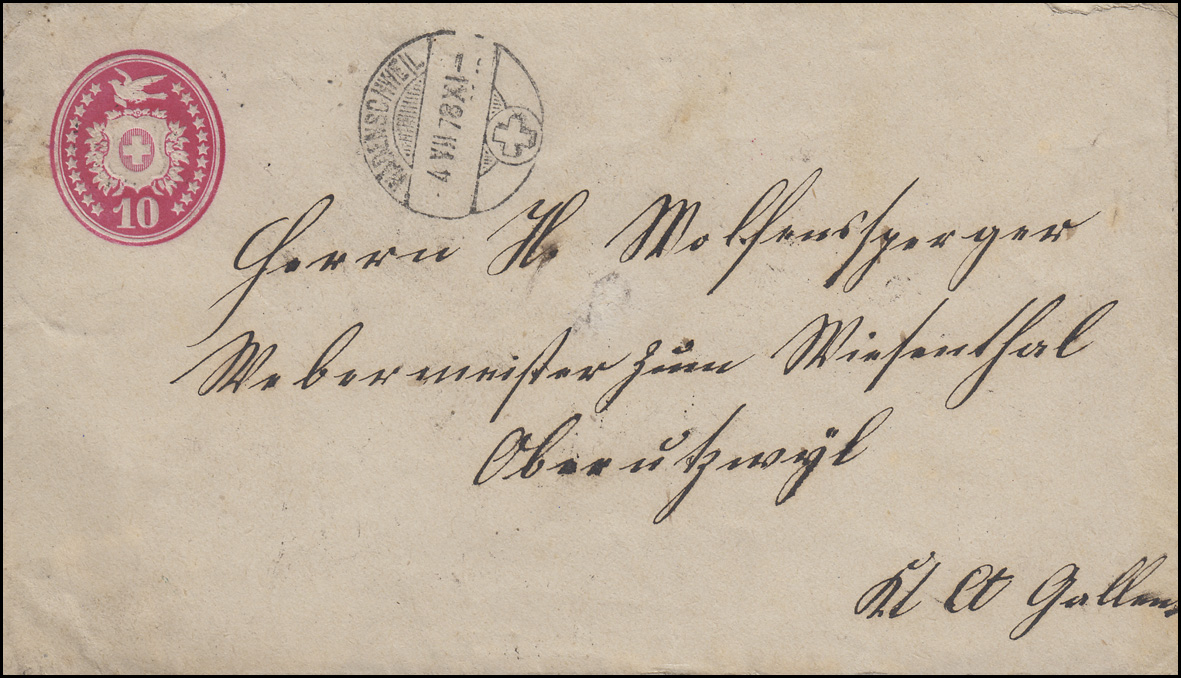 10
WÄDENSCHWEIL
4 VII 78 XI–
Herrn H. Wolfenssperger
Webermeister zum Wiesenthal
Oberutzwÿl
Kt St Gallen